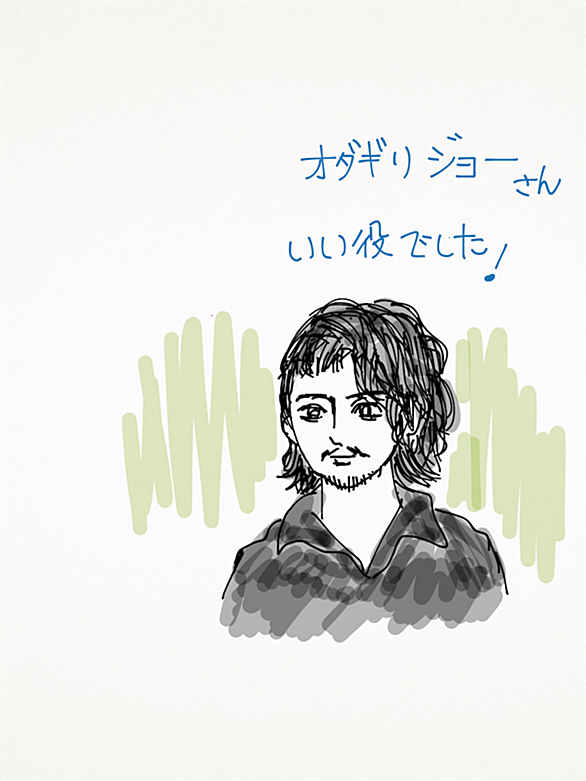 オダギリ ジョー
さん
いい役でした!